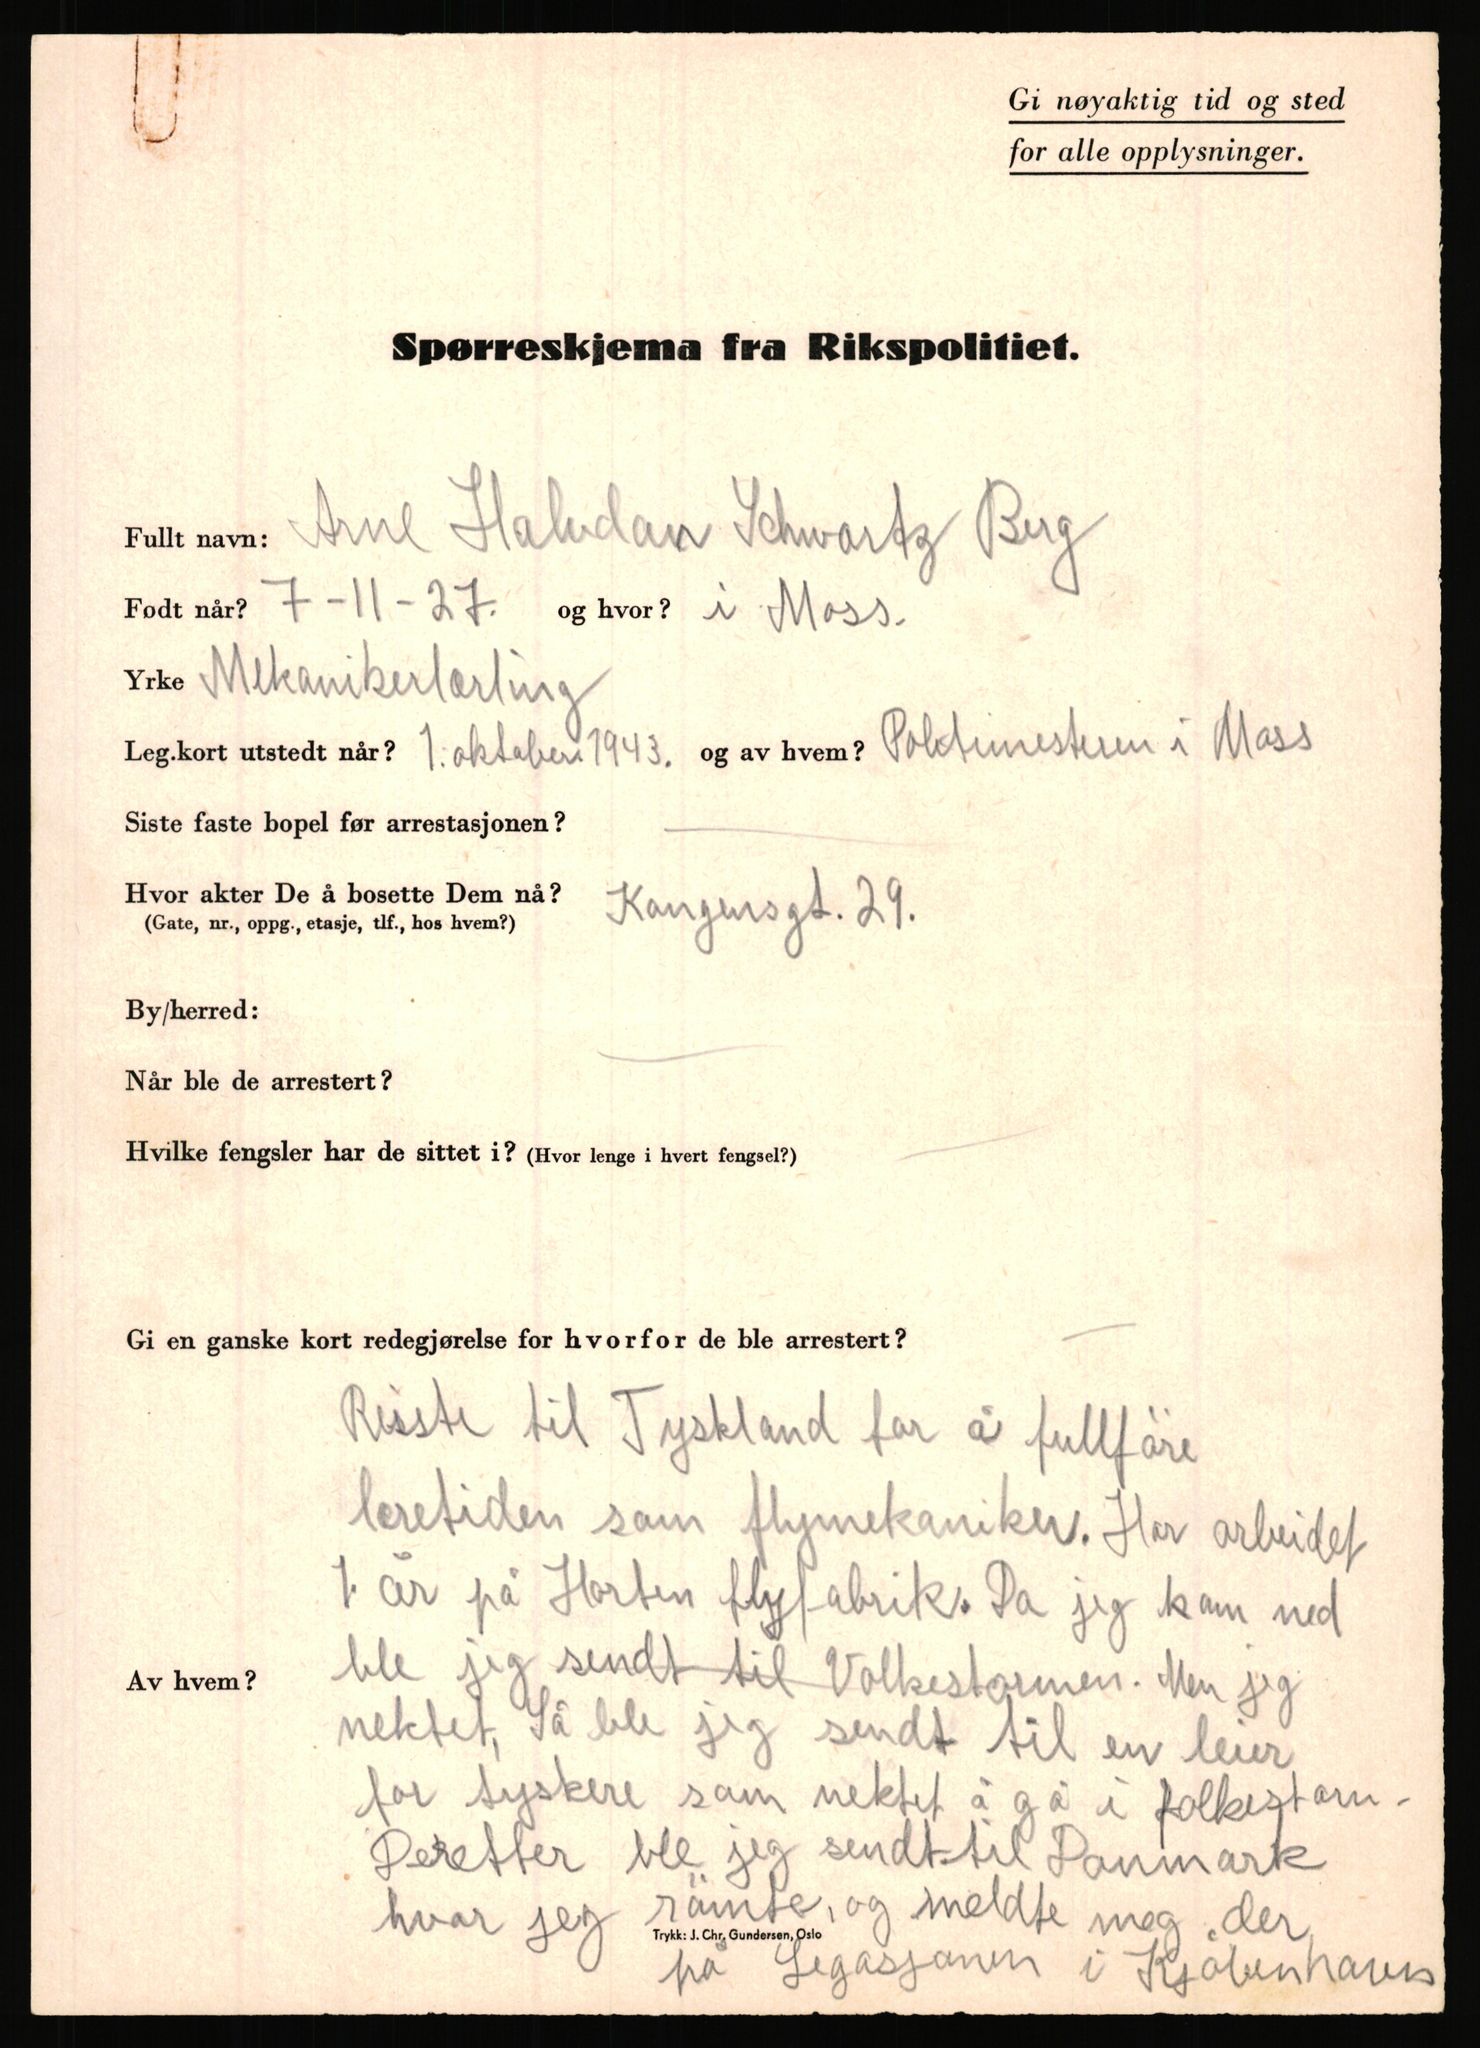 Gi nøyaktig tid og sted
for alle opplysninger.
Spørreskjema fra Rikspolitiet.
Fullt navn: Arne Halvdan Schwartz Berg
Født når? 7-11-27. og hvor? i Moss.
Yrke Mekanikerlærling
Leg.kort utstedt når? 1. oktober 1943. og av hvem? Politimesteren i Moss
Siste faste bopel før arrestasjonen? —
Hvor akter De å bosette Dem nå? Kongensgt. 29.
(Gate, nr., oppg., etasje, tlf., hos hvem?)
By/herred:
—
Når ble de arrestert?
Hvilke fengsler har de sittet i? (Hvor lenge i hvert fengsel?) —
Gi en ganske kort redegjørelse for hvorfor de ble arrestert? —
Reisste til Tyskland for å fullföre
læretiden som flymekaniker. Har arbeidet
1. år på Horten flyfabrik. Da jeg kom ned
ble jeg sendt til Volkestormen. Men jeg
Av hvem?
nektet, Så ble jeg sendt til en leier
for tyskere som nektet å gå i folkestorm-
Deretter ble jeg sendt til Danmark
hvor jeg römte, og meldte meg der
Trykk: J. Chr. Gundersen, Oslo
på Legasjonen i Kjöbenhavn